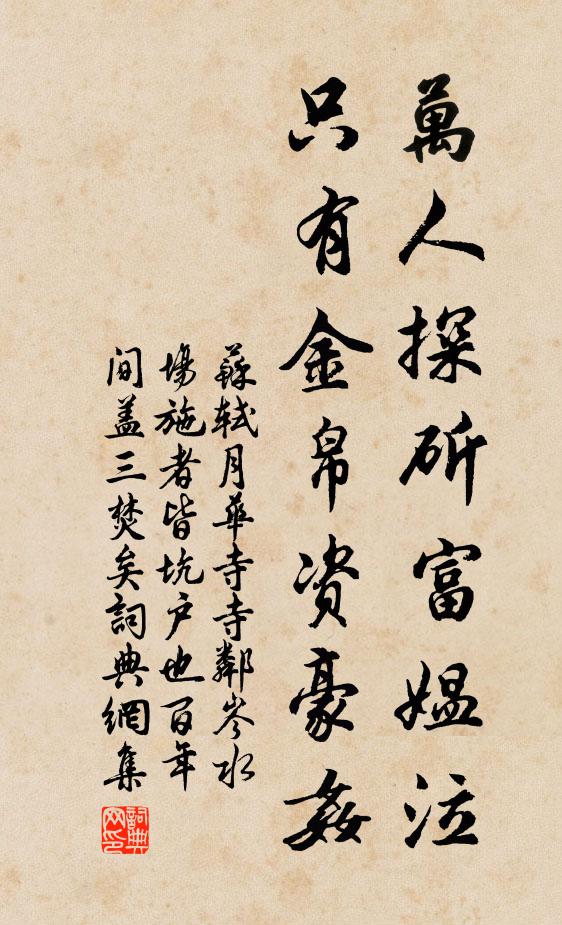 萬人探斫富媼泣
只有金帛資豪姦
蘇軾月華寺寺鄰岑水
場施者皆坑戶也百年
間蓋三焚矣詞典網集
詞典
网印